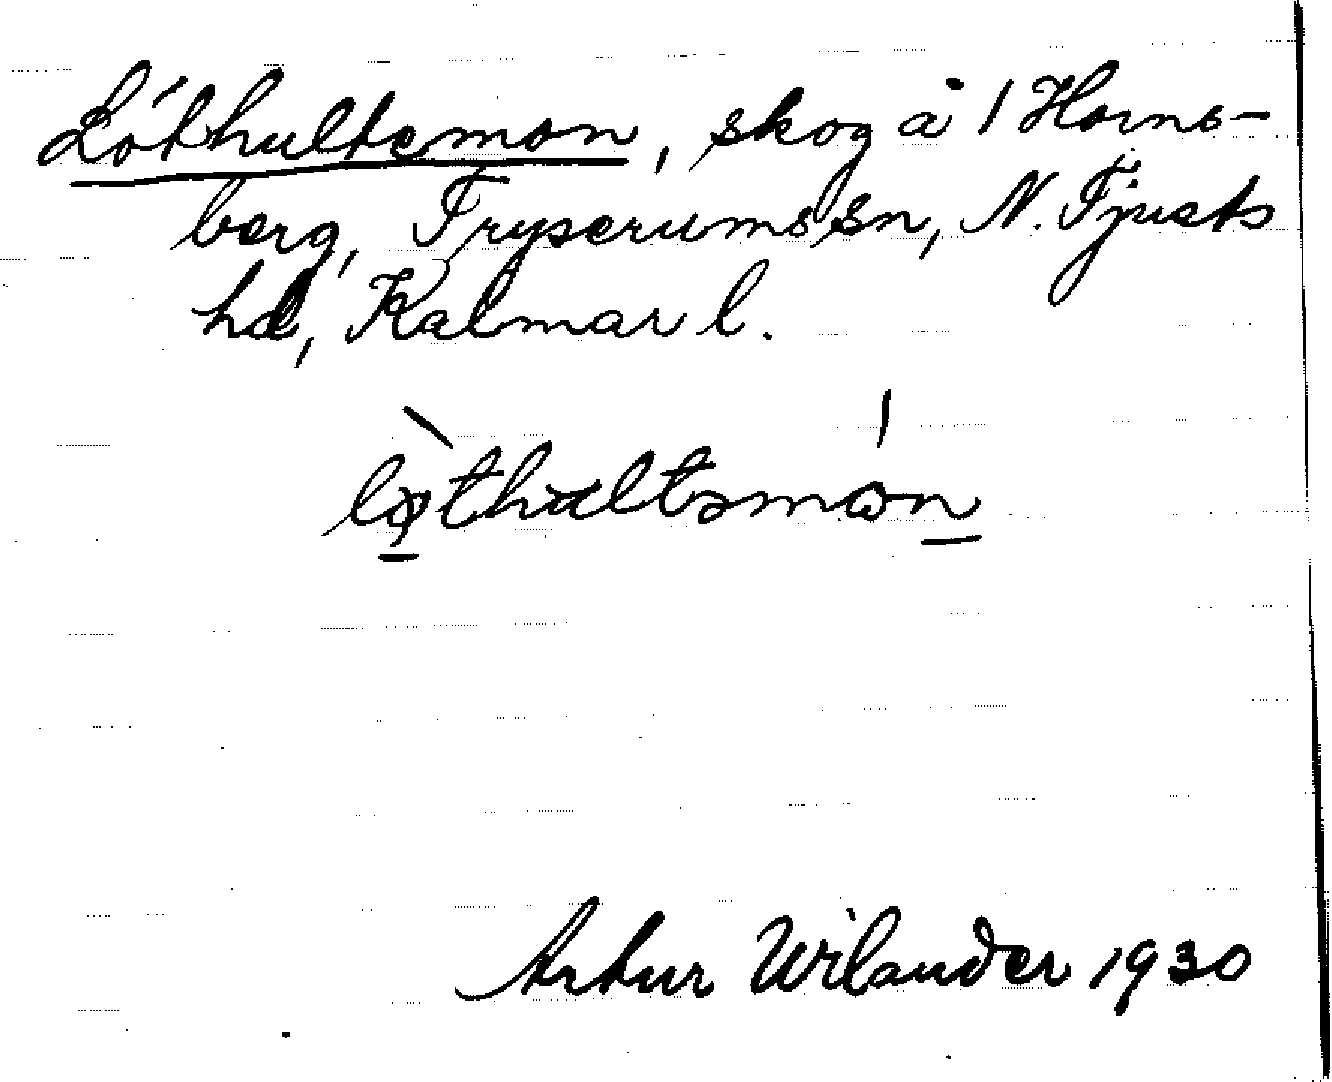 Lóthultsmon, skog å 1 Horns-
berg, Tryserums sn, N. Tjusts
hd, Kalmar l.
lǫ̀thultsmón
Artur Wilander 1930